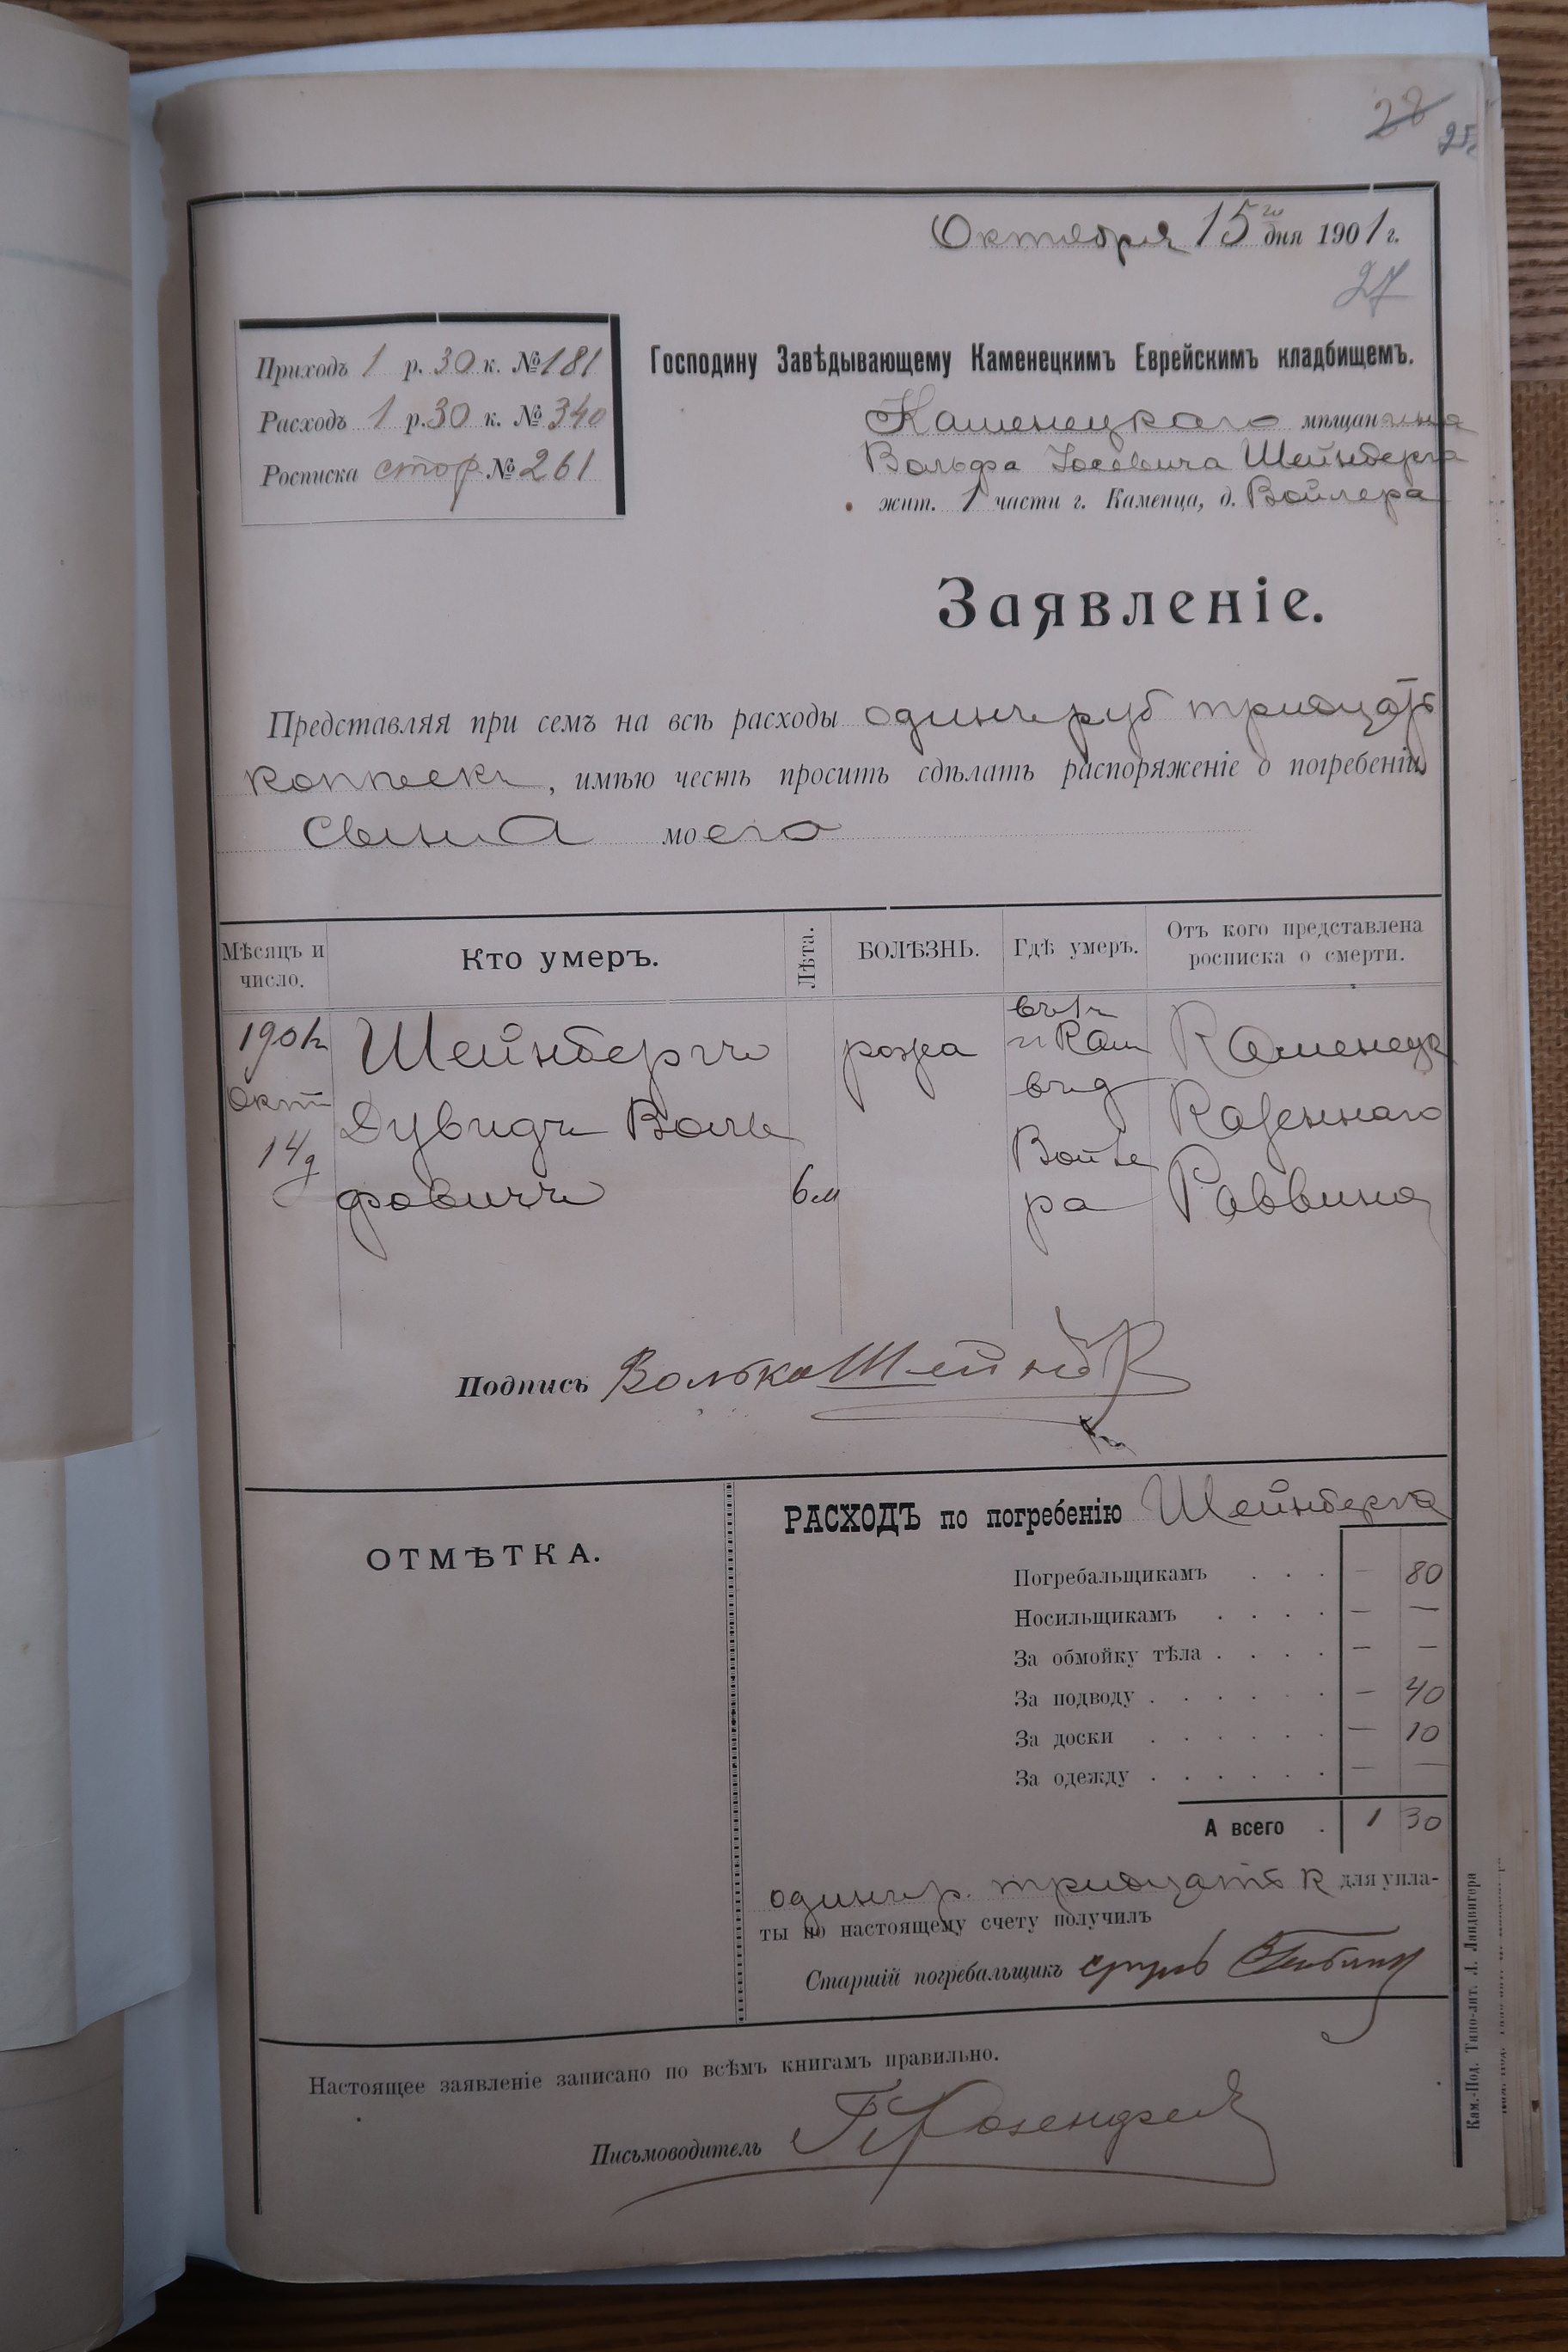 28 25.
Октября 15го дня 1901 г.
27
Приходъ 1 р. 30 к. № 181
Расходъ 1 р. 30 к. № 340
Росписка стор № 261
Господину Завѣдывающему Каменецкимъ Еврейскимъ кладбищемъ.
Каменецкаго мѣщанина
Вольфа Іосевича Шейнберга
жит. 1 части г. Каменца, д. Войлера
Заявленіе.
Представляя при семъ на всѣ расходы одинъ руб тридцать
коппеекъ, имѣю честь просить сдѣлать распоряженіе о погребеніи
сына моего
Мѣсяцъ и число. Кто умеръ. Лѣта. БОЛѢЗНЬ. Гдѣ умеръ. Отъ кого представлена росписка о смерти.
1901г Шейнбергъ рожа въ 1ч г Кам Каменецк
Окт Дувидъ Воль въ д Казеннаго
14 д фовичъ 6 м Раввина
ра
Подпись Волько Шейнб
ОТМѢТКА.
РАСХОДЪ по погребенію Шейнберга
Погребальщикамъ . . . — 80
Носильщикамъ . . . . — —
За обмойку тѣла . . . . — —
За подводу . . . . . . — 40
За доски . . . . . . — 10
За одежду . . . . . . — —
А всего . 1 30
одинъ р. тридцать к для упла-
ты по настоящему счету получилъ
Старшій погребальщикъ
Настоящее заявленіе записано по всѣмъ книгамъ правильно.
Письмоводитель
Кам.-Под. Типо-лит. Л. Ландвигера